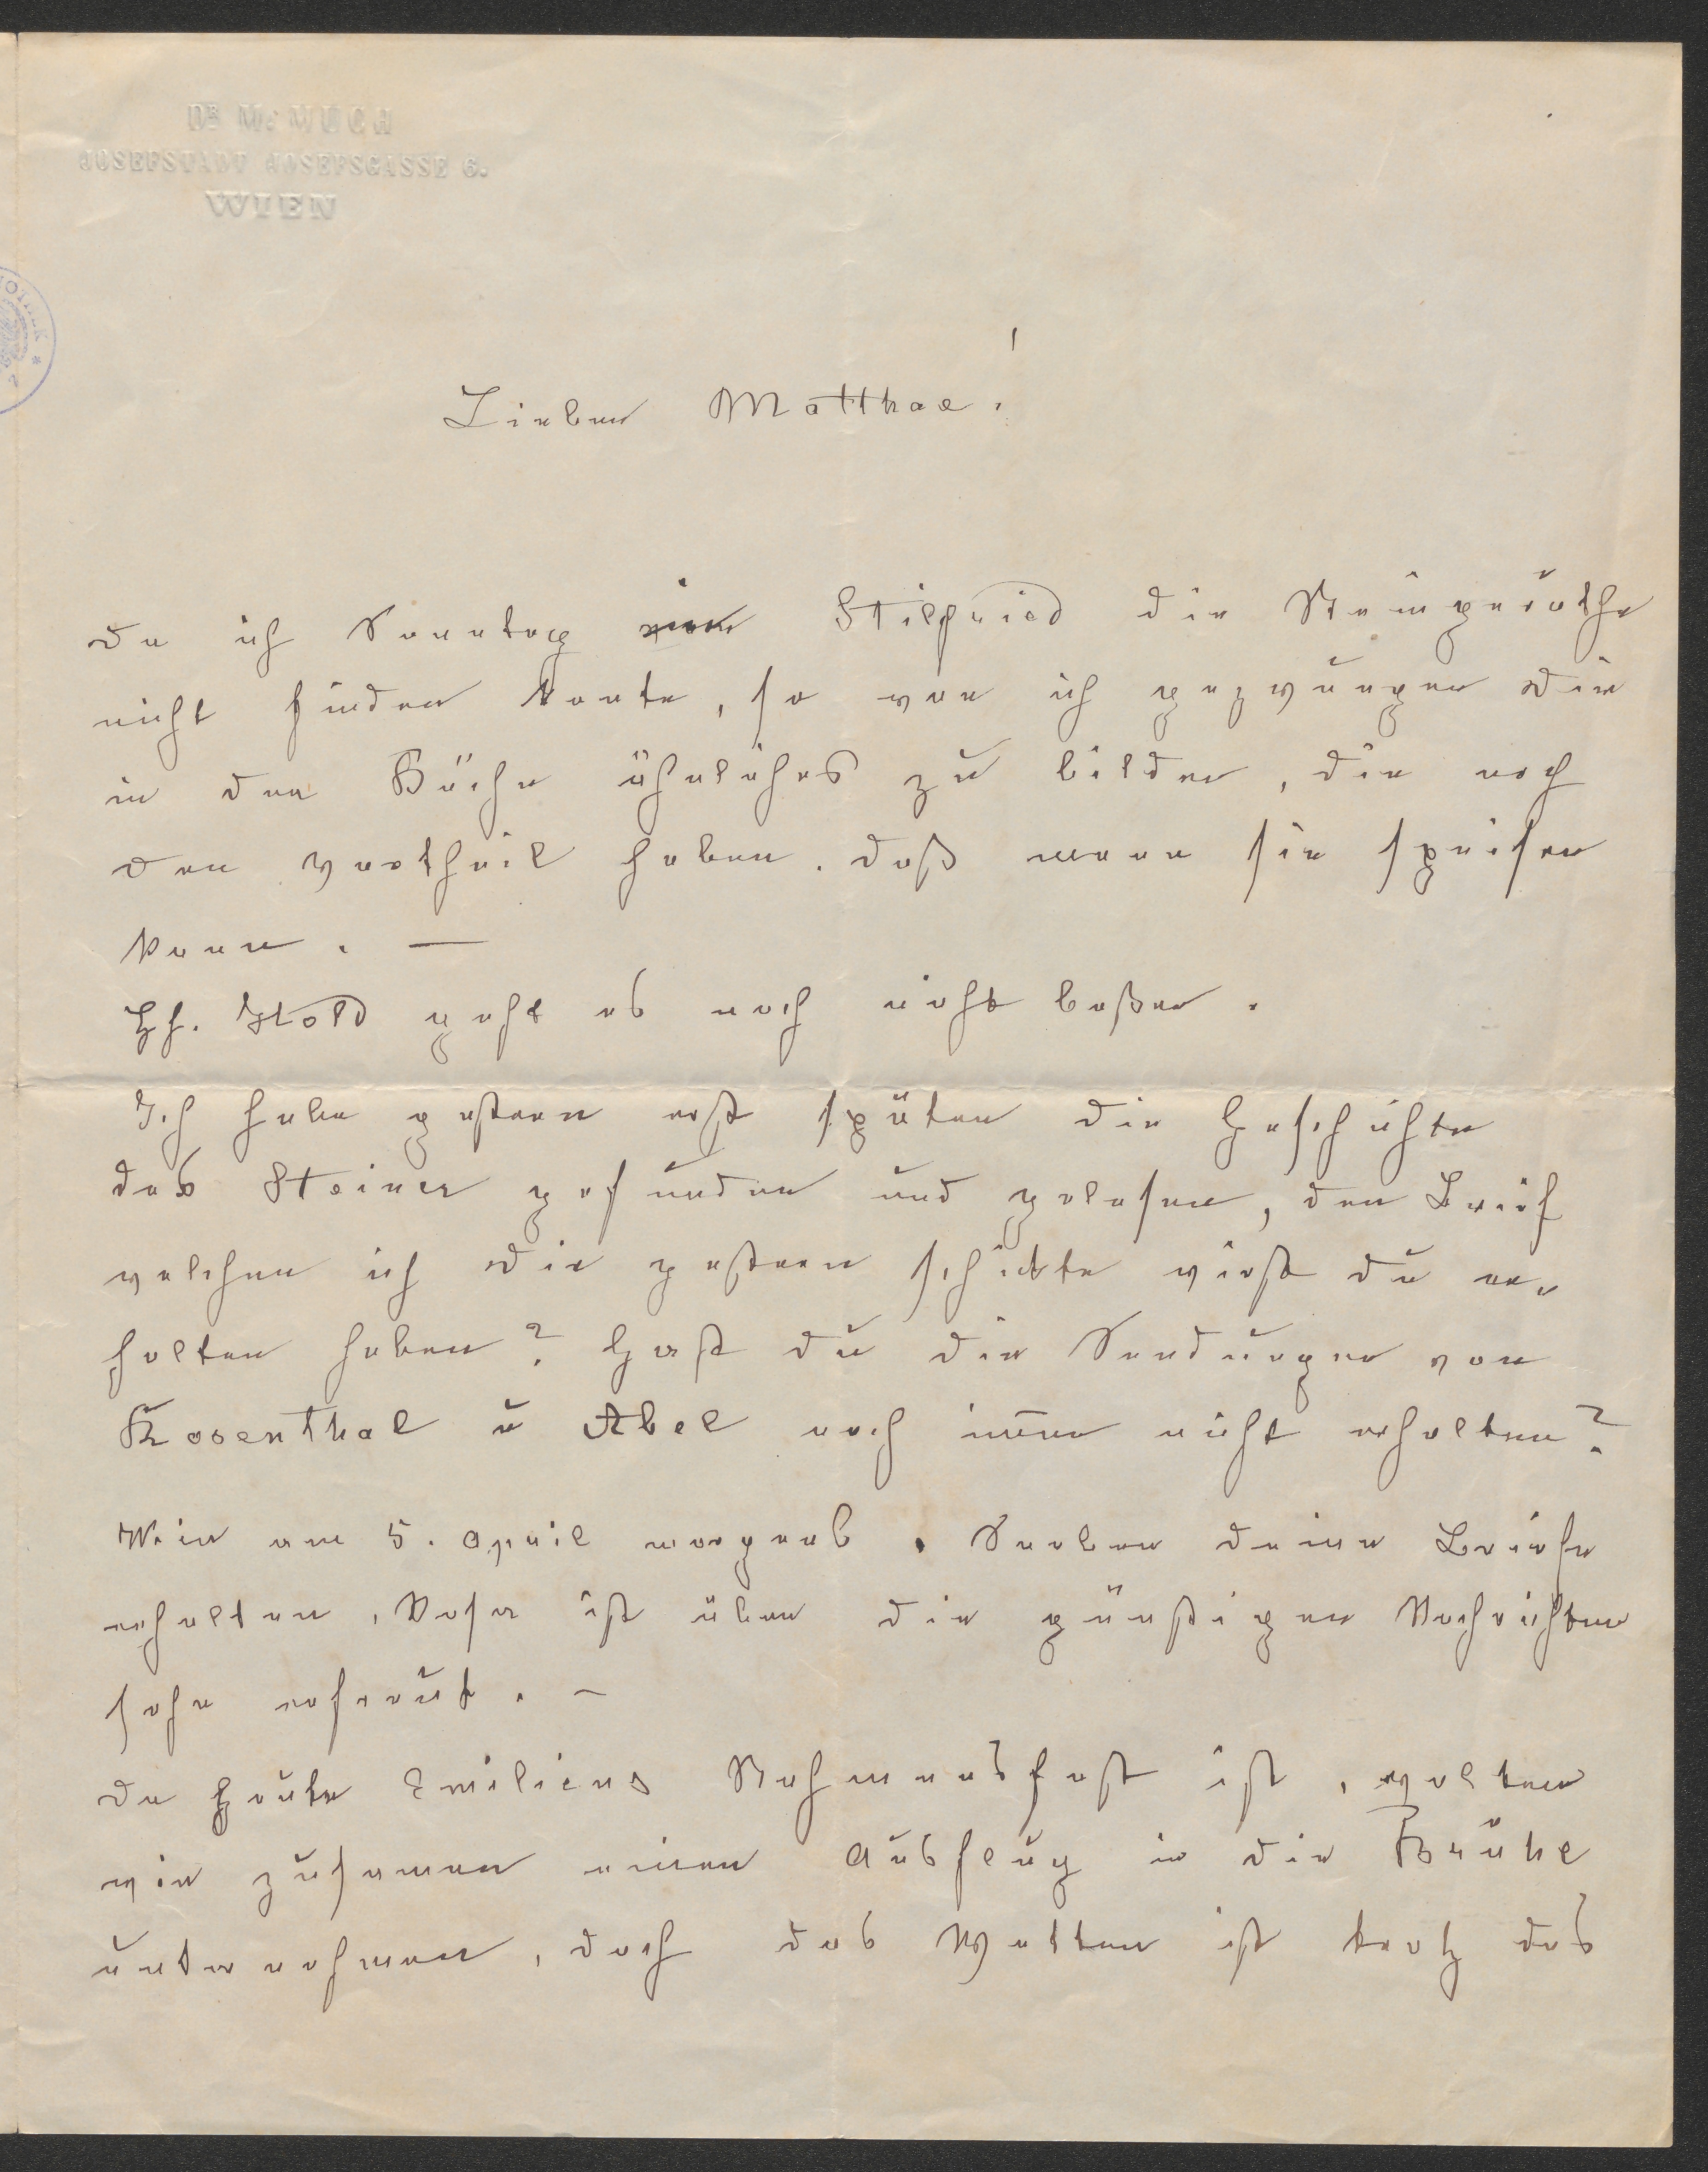 DR. M. MUCH
JOSEFSTADT JOSEFSGASSE 6.
WIEN
Lieber Matthae!
Da ich Sonntag Stilfried die Steingeräthe
nicht finden konte, so war ich gezwungen die
in der Küche ähnliches zu bilden, die noch
den Vortheil haben, daß mann sie speisen
kann. —
H. Hold geht es noch nicht beßer.
Ich habe gestern erst später die Geschichte
des Steiner gefunden und gelesen, den Brief
welchen ich dir gestern schickte wirst du er-
halten haben? Hast du die Sendungen von
Rosenthal u Abel noch imer nicht erhalten?
Wien am 5. April morgens. Soeben deine Briefe
erhalten, ist über die günstigen Nachrichten
sehr erfreut. —
Da heute Emiliens Nahmensfest ist, wolten
wir zusamen einen Ausflug in die Brühl
unternehmen, doch das Wetter ist trotz des